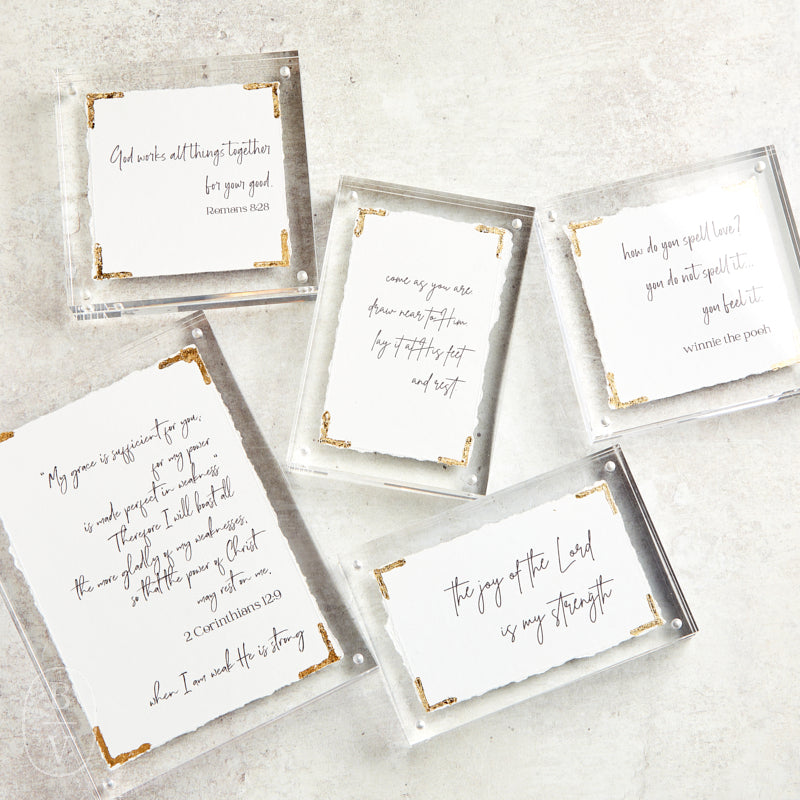 God works all things together
for your good.
Romans 8:28
come as you are.
draw near to Him
lay it at His feet
and rest
how do you spell love?
you do not spell it...
you feel it.
winnie the pooh
"My grace is sufficient for you,
for my power
is made perfect in weakness"
Therefore I will boast all
the more gladly of my weaknesses,
so that the power of Christ
may rest on me.
2 Corinthians 12:9
when I am weak He is strong
the joy of the Lord
is my strength